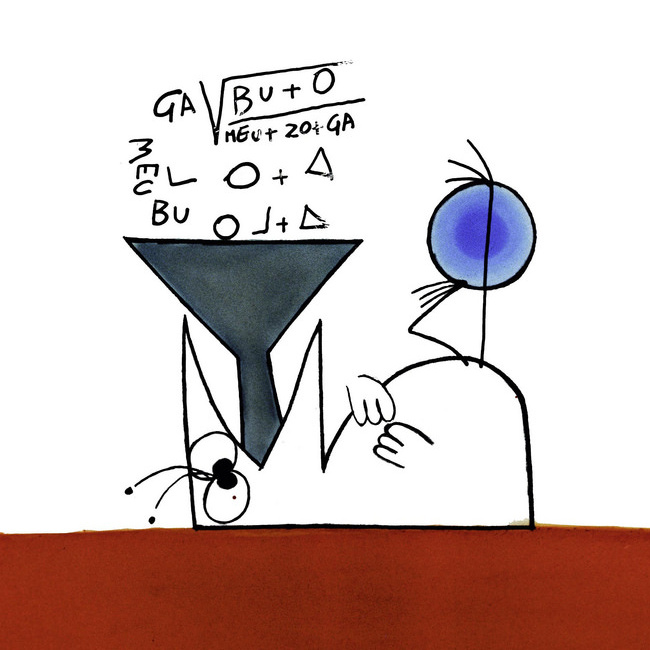 GA √ BU + O
MEU + 20 ÷ GA
MEC L O + Δ
BU O ┘ + Δ